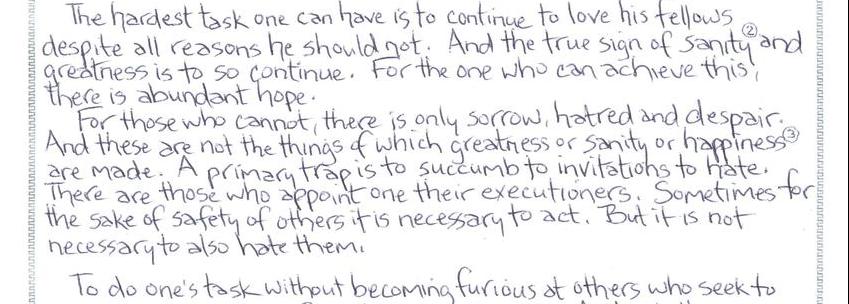 The hardest task one can have is to continue to love his fellows
despite all reasons he should not. And the true sign of sanity② and
greatness is to so continue. For the one who can achieve this,
there is abundant hope.
For those who cannot, there is only sorrow, hatred and despair.
And these are not the things of which greatness or sanity or happiness③
are made. A primary trap is to succumb to invitations to hate.
There are those who appoint one their executioners. Sometimes for
the sake of safety of others it is necessary to act. But it is not
necessary to also hate them.
To do one's task without becoming furious at others who seek to